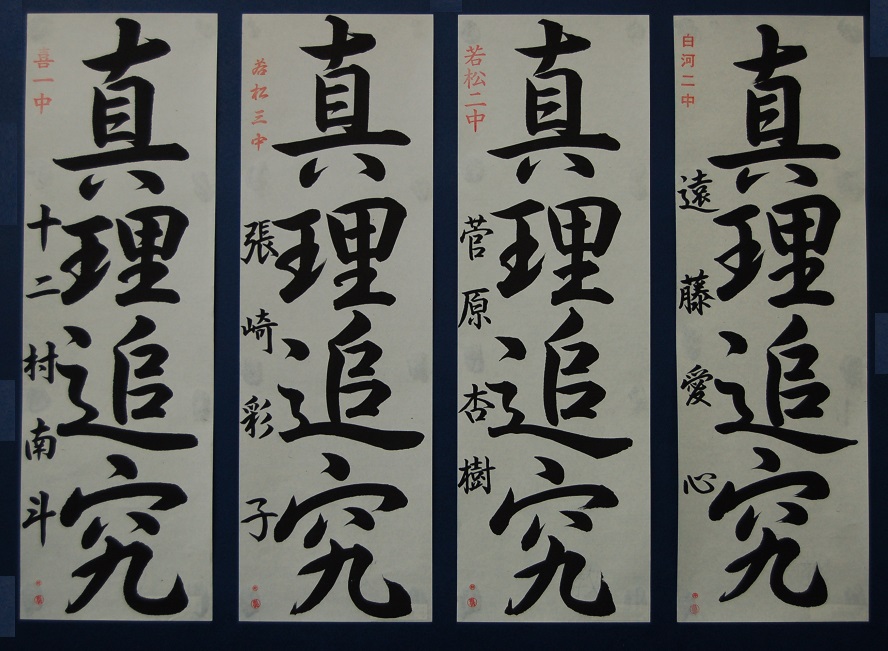 白河二中
真理追究
遠藤愛心
若松二中
真理追究
菅原杏樹
若松三中
真理追究
張崎彩子
喜一中
真理追究
十二村南斗